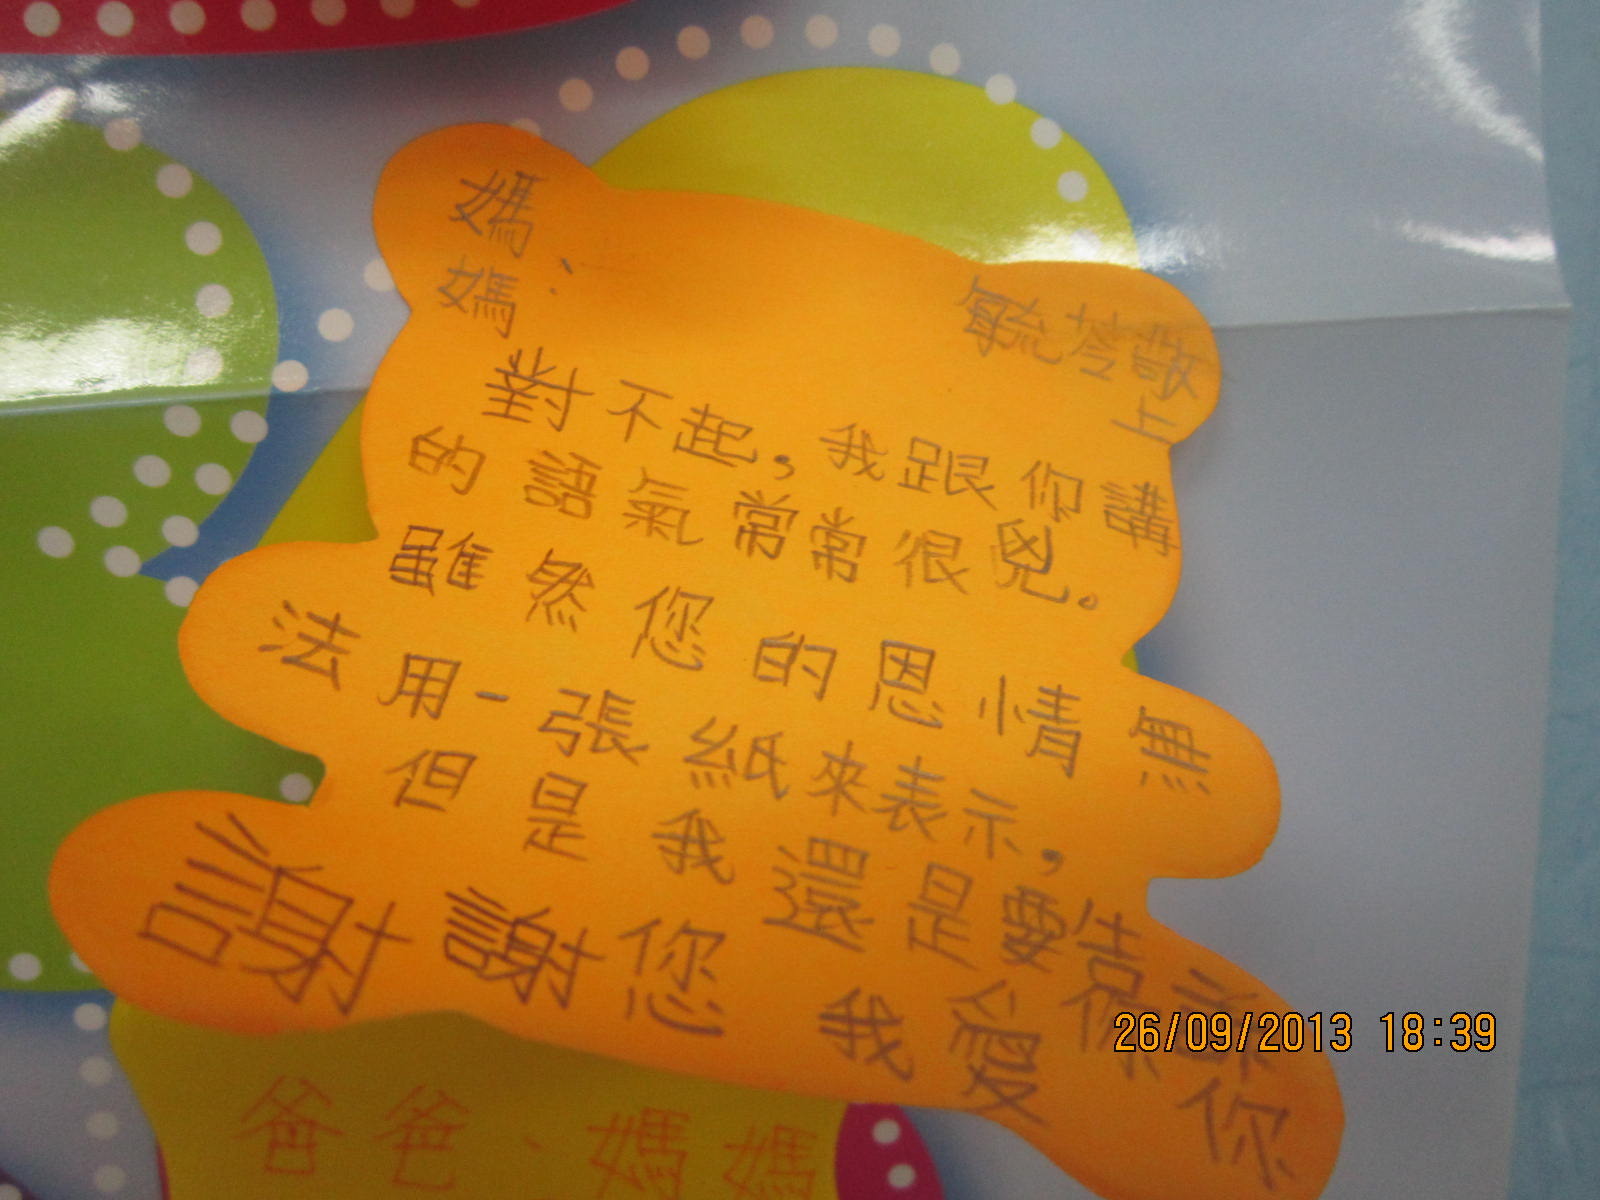 媽
媽：
毓苓敬
上
對不起，我跟你講
的語氣常常很兇。
雖然您的恩情無
法用一張紙來表示，
但是我還是要告訴
你
謝謝您 我愛你
爸爸、媽媽
26/09/2013 18:39